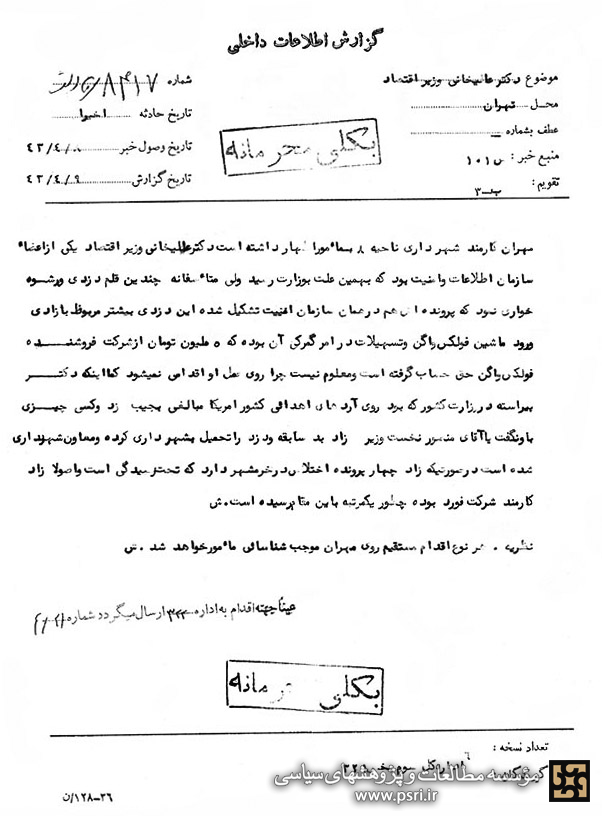 گزارش اطلاعات داخلی
موضوع دکتر عالیخانی وزیر اقتصاد
شماره ۸۴۱۷
محل تهران
تاریخ حادثه اخیرا
عطف بشماره
تاریخ وصول خبر ۴۳/۴/۸
بکلی محرمانه
منبع خبر: س ۱۰۱۰
تاریخ گزارش ۴۳/۴/۹
تقویم: ب-۳
مهران کارمند شهرداری ناحیه ۸ بمأمور اظهار داشته است دکتر عالیخانی وزیر اقتصاد یکی از اعضاء
سازمان اطلاعات و امنیت بود که بهمین علت بوزارت رسید ولی متأسفانه چندین قلم دزدی و رشوه
خواری نمود که پرونده اش هم در همان سازمان امنیت تشکیل شده این دزدی بیشتر مربوط بازادی
ورود ماشین فولکس واگن و تسهیلات در امر گمرکی آن بوده که ۵ ملیون تومان از شرکت فروشنده
فولکس واگن حق حساب گرفته است و معلوم نیست چرا روی عمل او اقدامی نمیشود کما اینکه دکتر
پیراسته در وزارت کشور که بود روی آرد های اهدائی کشور امریکا مبالغی بجیب زد و کسی چیزی
باو نگفت یا آقای منصور نخست وزیر زاد بد سابقه و دزد را تحمیل بشهرداری کرده و معاون شهرداری
شده است در صورتیکه زاد چهار پرونده اختلاس در خرمشهر دارد که تحت رسیدگی است و اصولا زاد
کارمند شرکت فورد بوده چطور یکمرتبه باین مقام رسیده است. ش
نظریه . هر نوع اقدام مستقیم روی مهران موجب شناسائی مأمور خواهد شد . ش
عیناً جهته اقدام به اداره ۳۲۲ ارسال میگردد شماره
بکلی محرمانه
تعداد نسخه :
اداره کل سوم
موسسه مطالعات و پژوهشهای سیاسی
www.psri.ir
۳۶-۱۲۸/ن